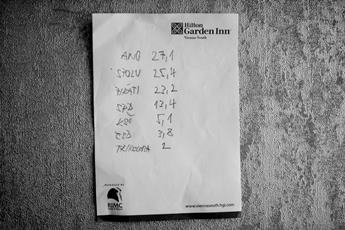 Hilton
Garden Inn
Vienna South
ANO 27,1
SPOLU 25,4
PIRÁTI 22,2
SPD 13,4
KSČ 5,1
ČSSD 3,8
TRIKOLORA 2
MANAGED BY
RIMC
www.viennasouth.hgi.com